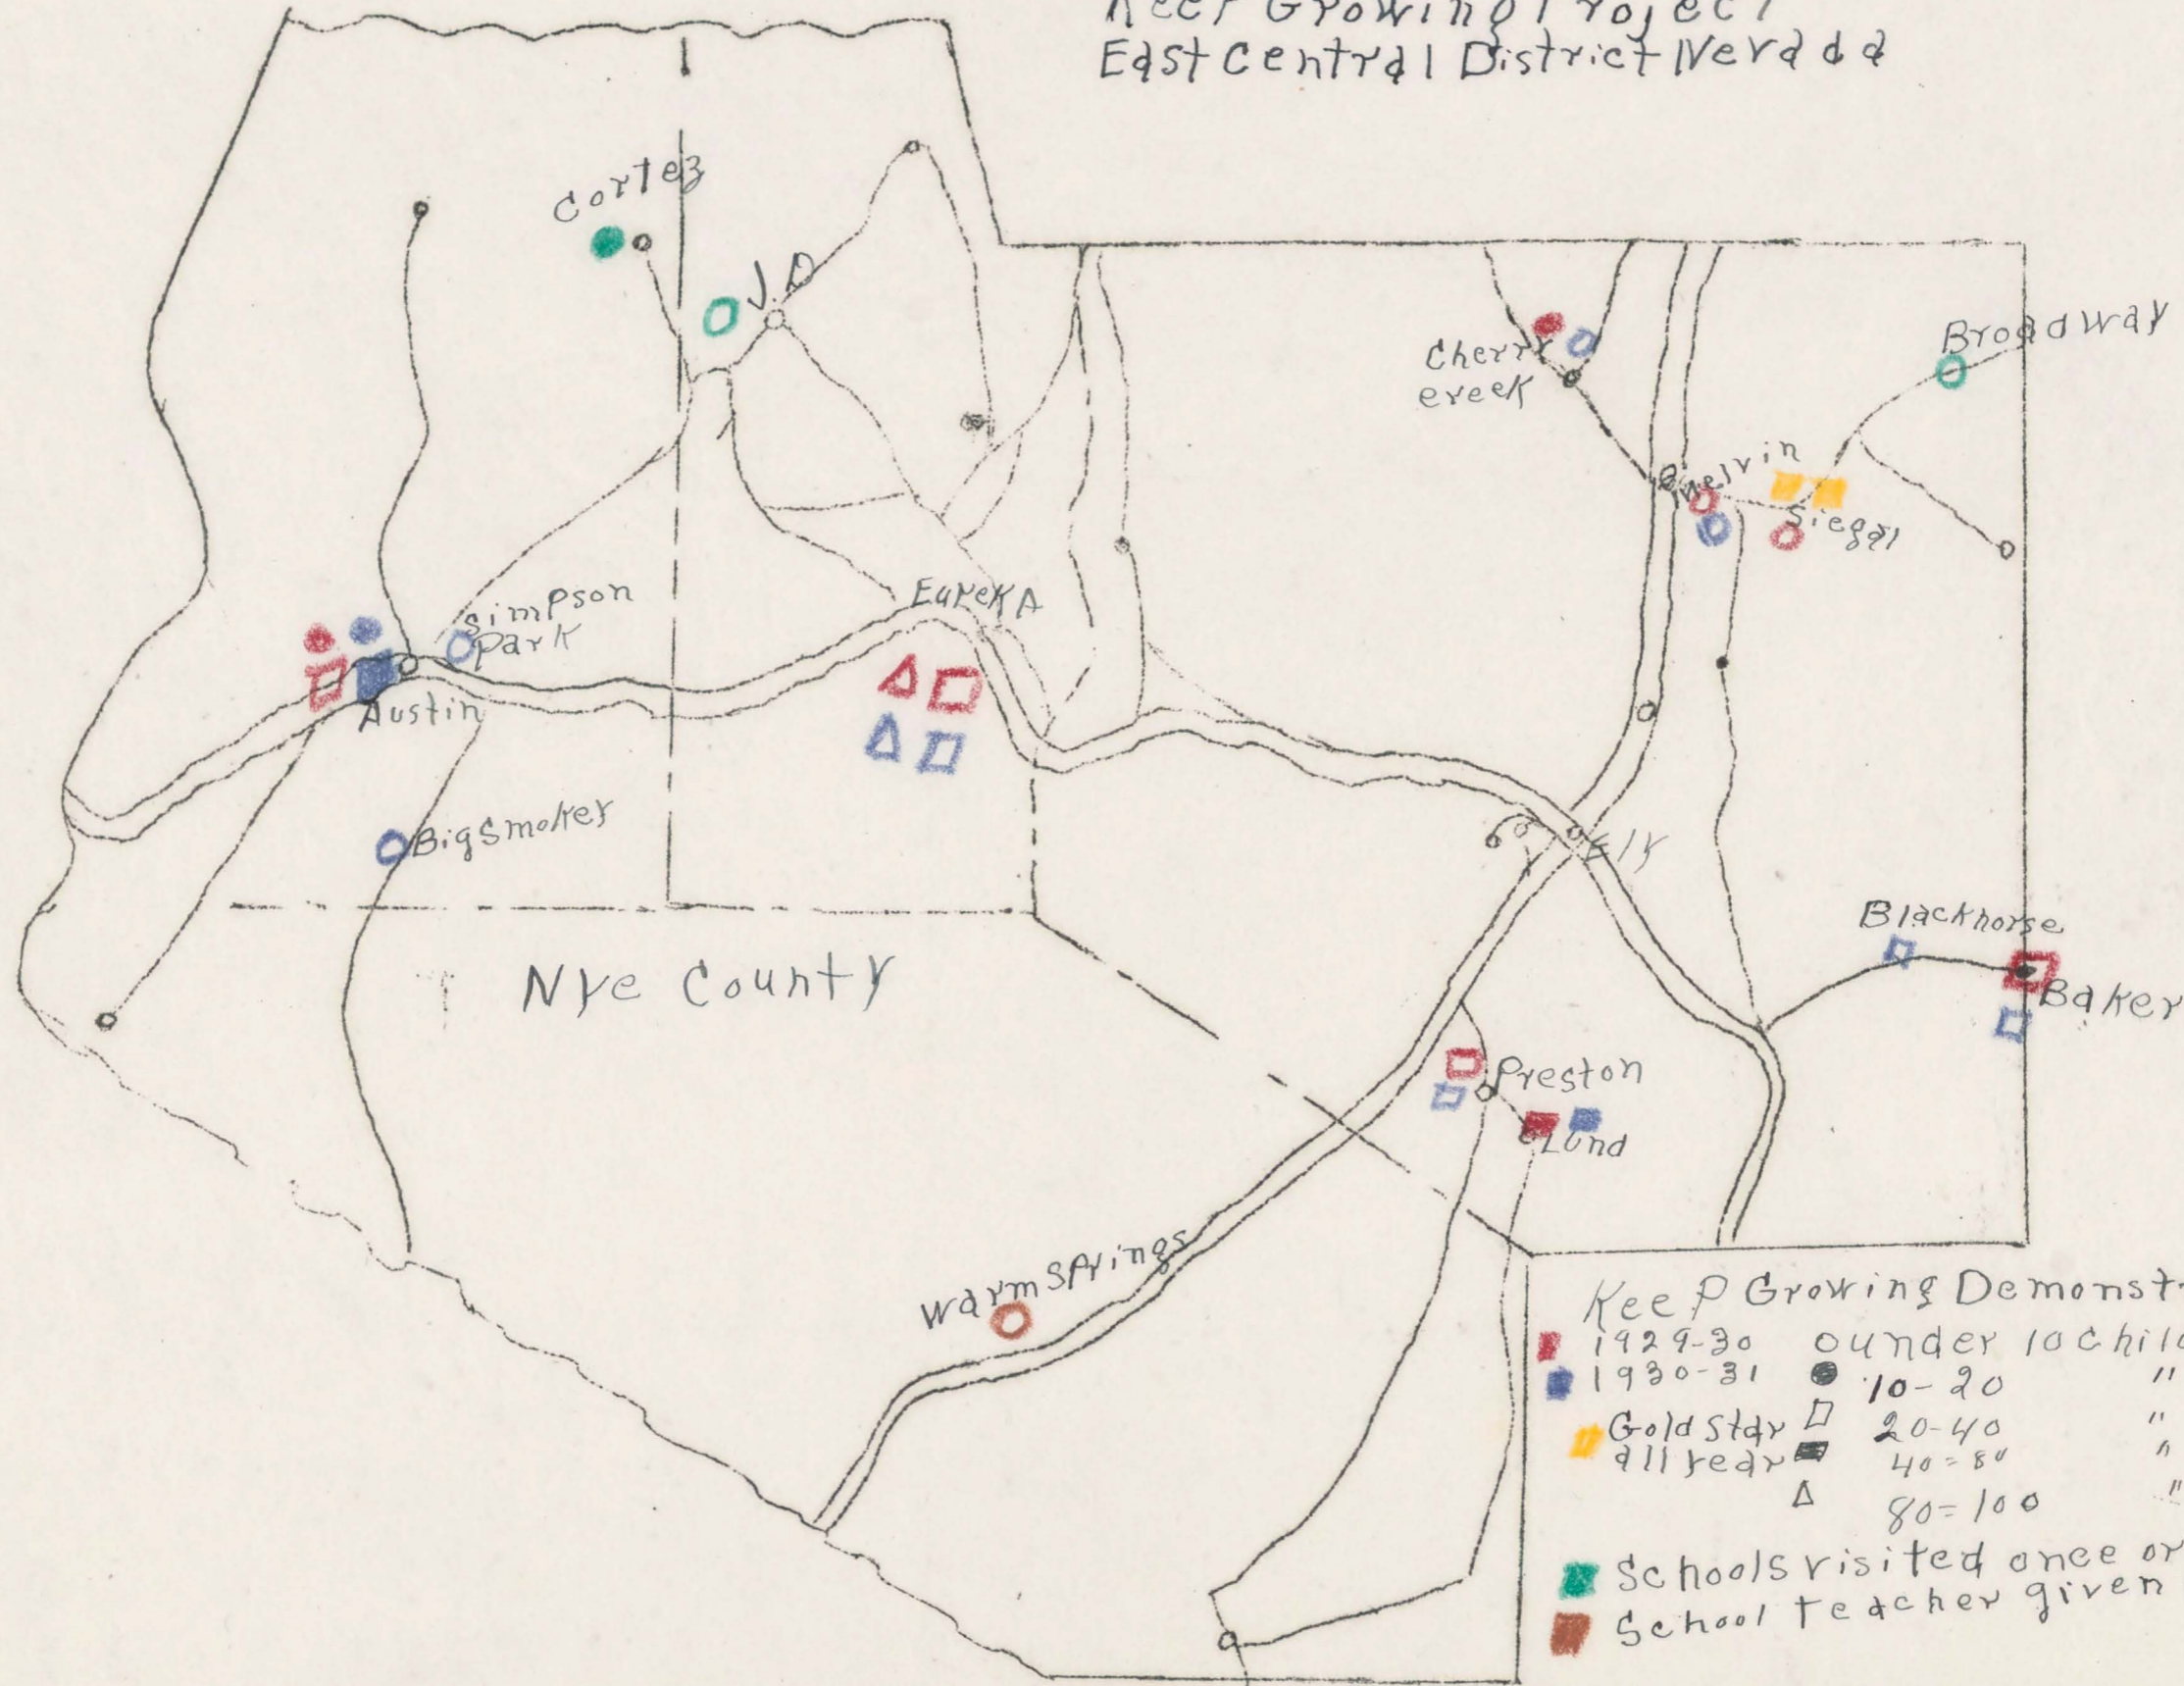 Keep Growing Project
East Central District Nevada
Cortez
J.D
Broadway
Cherry
creek
Siegal
Simpson
Park
Eureka
Austin
Big Smokey
Ely
Blackhorse
Baker
Nye County
Preston
Lund
Warm Springs
Keep Growing Demonst
1929-30 o under 10 Chil
1930-31 10-20 "
Gold Star 20-40 "
all year 40=80 "
80=100 "
Schools visited once or
School teacher given